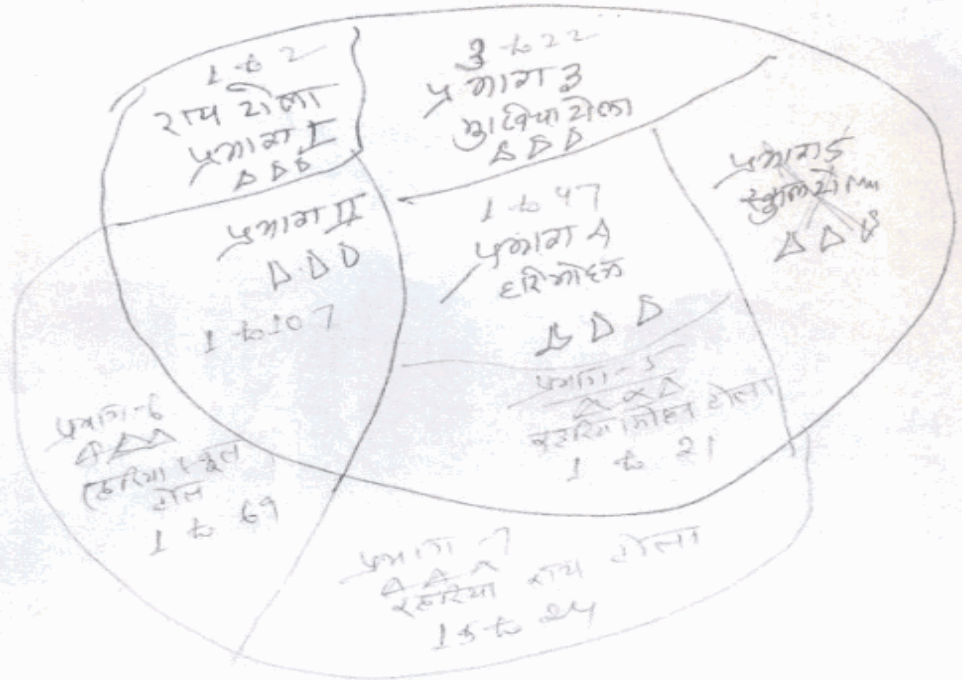 1 to 2
राय टोला
प्रभाग I
3 to 22
प्रभाग 3
मुखिया टोला
प्रभाग 5
स्कुल टोला
प्रभाग II
1 to 107
1 to 47
प्रभाग 4
हरिमोहन
प्रभाग-5
टोला
1 to 21
प्रभाग-6
स्कूल
टोल
1 to 69
प्रभाग-7
राय टोला
15 to 24